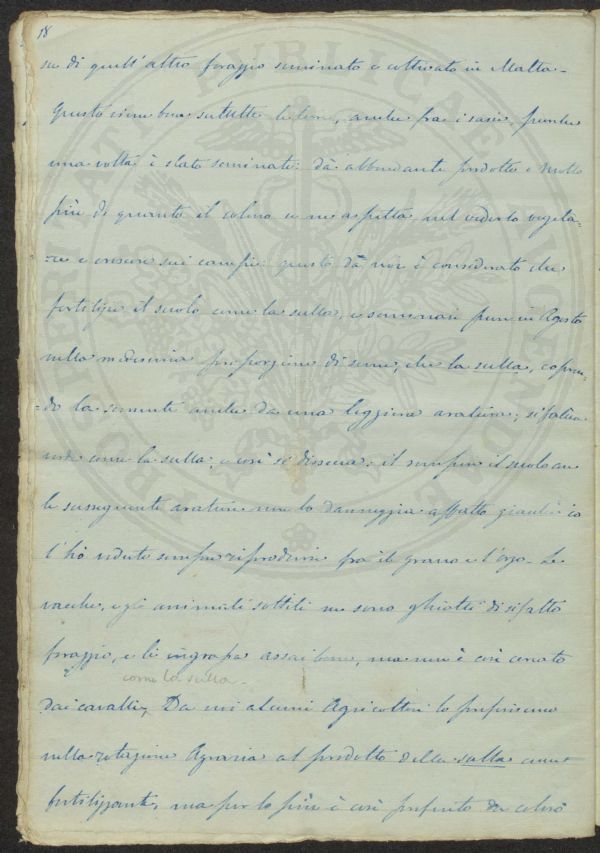 18
su di quell'altro foraggio seminato e coltivato in Malta -
Questo viene bene su tutte le terre, anche fra i sassi, purchè
una volta è stato seminato: dà abbondante prodotto e molto
più di quanto il colono se ne aspetta nel vederlo vegeta-
-re e crescere sui campi: questo da noi è considerato che
fertilizza il suolo come la sulla, e seminasi pure in Agosto
nella medesima proporzione di seme, che la sulla, copren-
-do la semente anche da una leggiera aratura; si falcia
verde come la sulla, e così si dissecca: il rompere il suolo
le susseguenti arature non lo danneggia affatto giacchè io
l'hò veduto sempre riprodursi fra il grano e l'orzo - Le
vacche, e gli animali sottili ne sono ghiotti di sifatto
foraggio, e li ingrassa assai bene, ma non è così cercato
come la sulla -
dai cavalli, Da noi alcuni Agricoltori lo preferiscono
nella rotazione Agraria al prodotto della sulla come
fertilizzante, ma per lo più è così preferito da coloro
PROSPERITATI PVBLICAE AVGENDAE